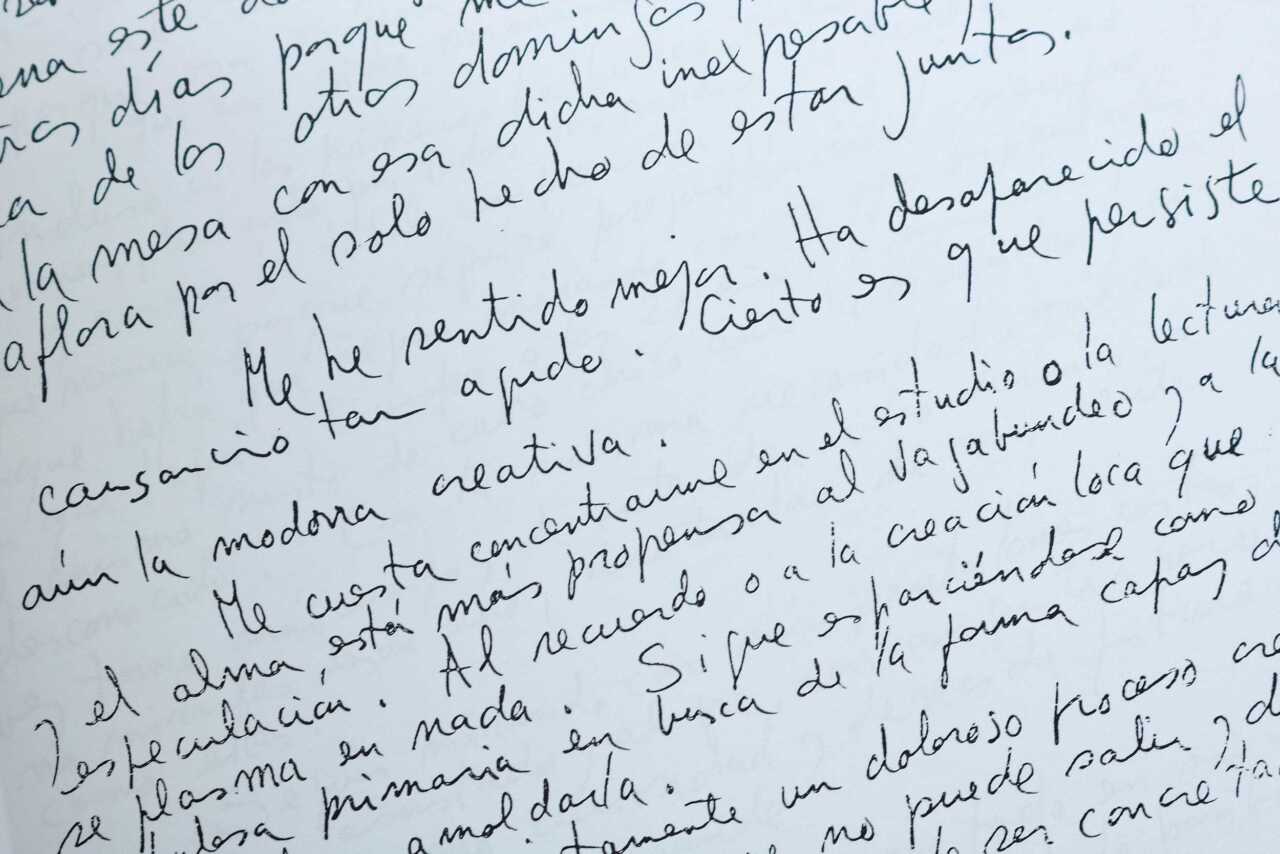 este
días porque me
de los otros domingos
la mesa con esa dicha inexpresable
aflora por el solo hecho de estar juntos.
Me he sentido mejor. Ha desaparecido el
cansancio tan agudo. Cierto es que persiste
aún la modorra creativa.
Me cuesta concentrarme en el estudio o la lectura
y el alma está más propensa al vagabundeo y a la
especulación. Al recuerdo o a la creación loca que
se plasma en nada. Sigue esparciéndose como
primaria en busca de la forma capaz de
amoldarla.
un doloroso proceso
no puede salir y
ser